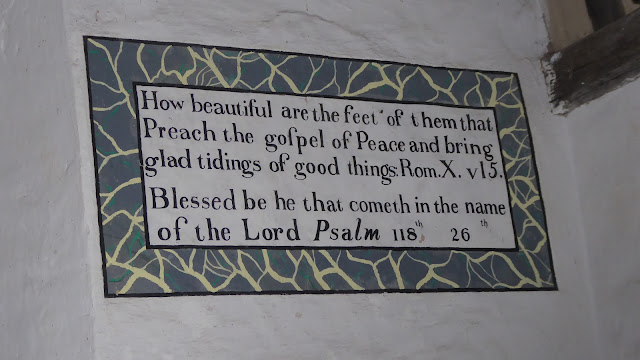 How beautiful are the feet of them that
Preach the goſpel of Peace and bring
glad tidings of good things. Rom. X. v 15.
Blessed be he that cometh in the name
of the Lord Psalm 118th 26th